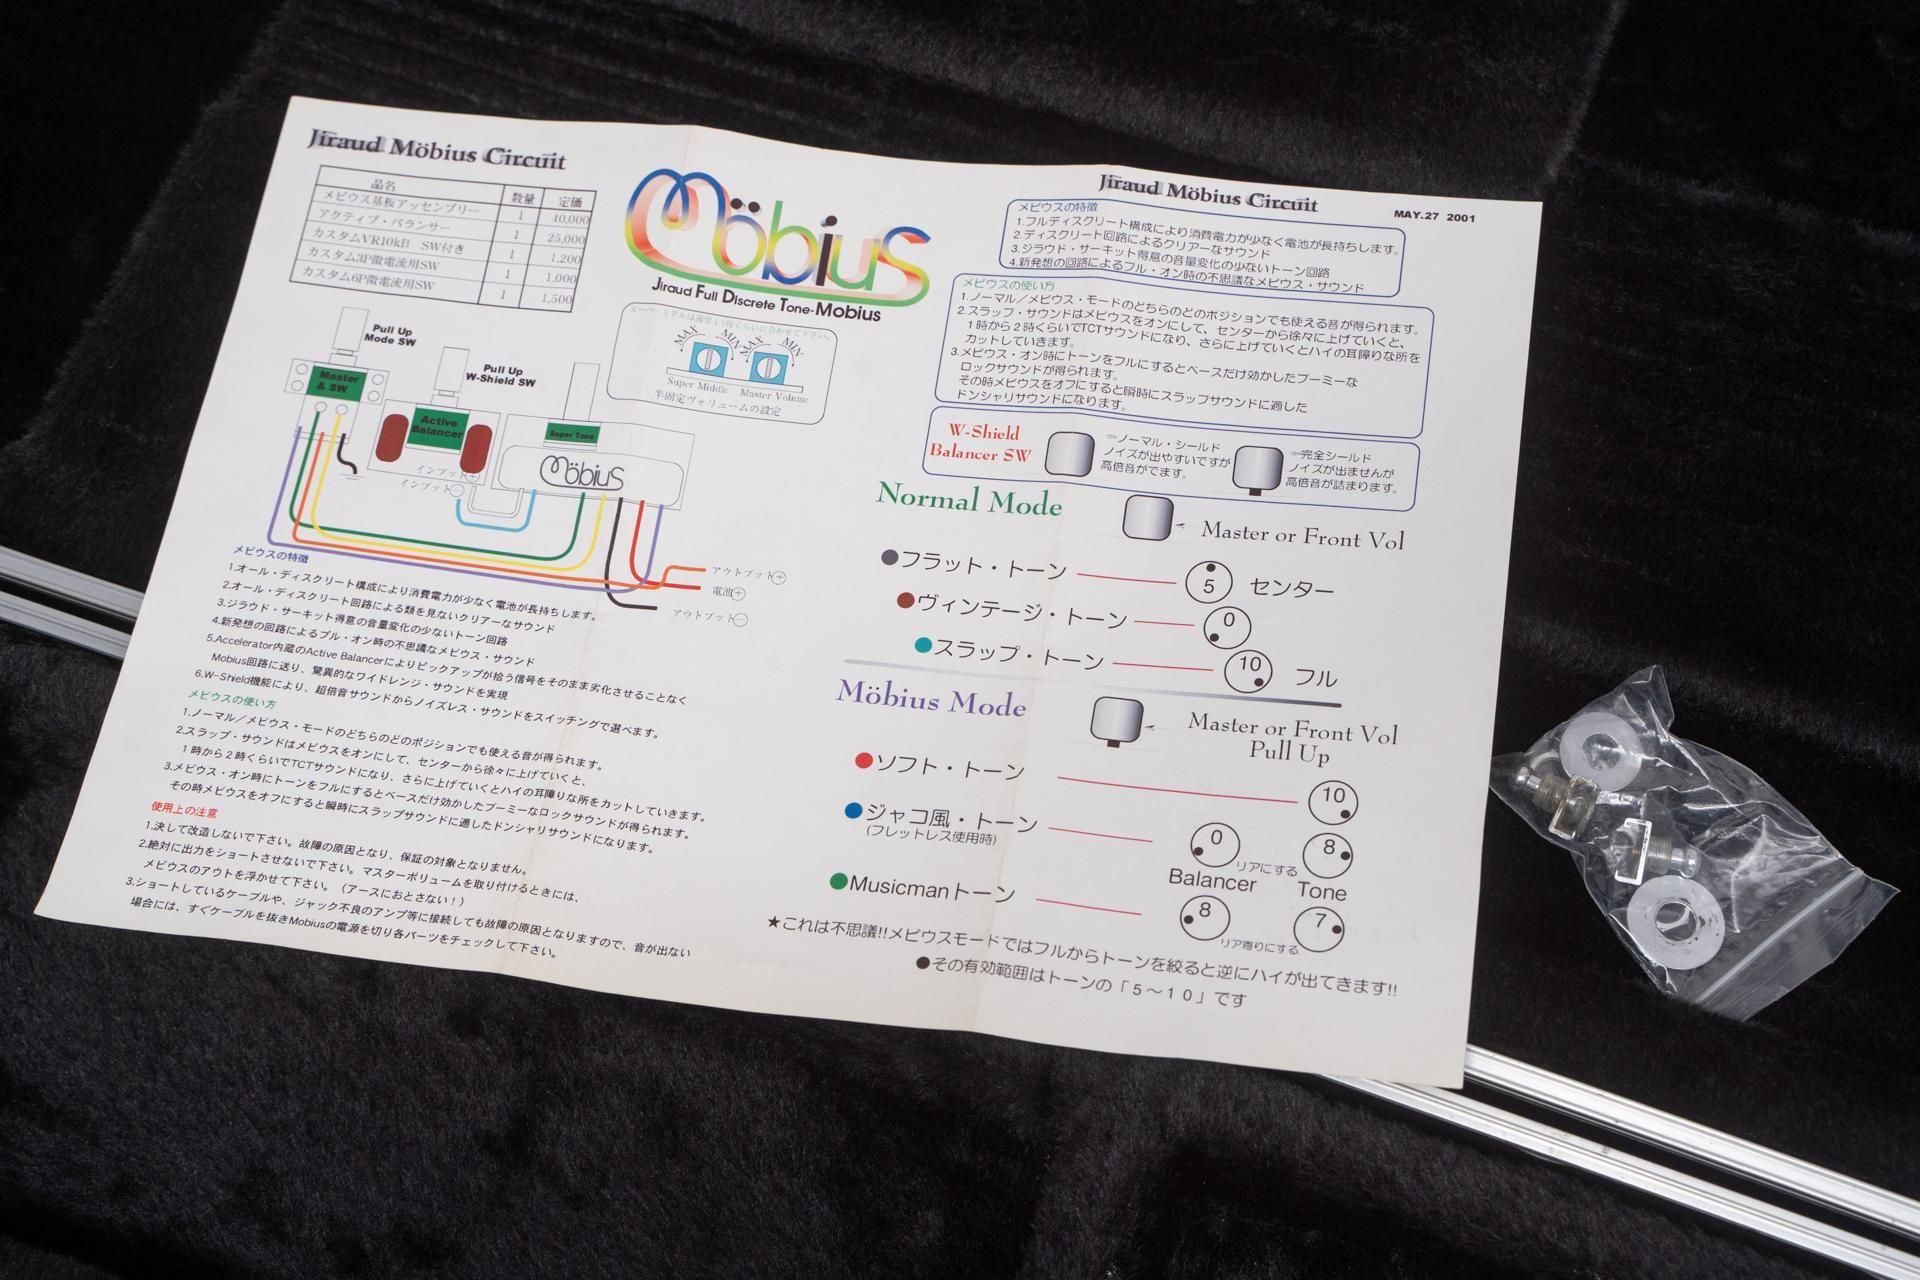 Jiraud Möbius Circuit
品名 数量 定価
メビウス基板アッセンブリー 1 40,000
アクティブ・バランサー 1 25,000
カスタムVR10kB SW付き 1 1,200
カスタム3P微電流用SW 1 1,000
カスタム6P微電流用SW 1 1,500
Möbius
Jiraud Full Discrete Tone-Mobius
スーパーミドルは通常11時くらいに合わせて下さい。
MAX MIN MAX MIN
Super Middle Master Volume
半固定ヴォリュームの設定
Pull Up
Mode SW
Pull Up
W-Shield SW
Master
& SW
Active
Balancer
Super Tone
Möbius
インプット+
インプット−
アウトプット+
電池+
アウトプット−
メビウスの特徴
1.オール・ディスクリート構成により消費電力が少なく電池が長持ちします。
2.オール・ディスクリート回路による類を見ないクリアーなサウンド
3.ジラウド・サーキット得意の音量変化の少ないトーン回路
4.新発想の回路によるプル・オン時の不思議なメビウス・サウンド
5.Accelerator内蔵のActive Balancerによりピックアップが拾う信号をそのまま劣化させることなく
Mobius回路に送り、驚異的なワイドレンジ・サウンドを実現
6.W-Shield機能により、超倍音サウンドからノイズレス・サウンドをスイッチングで選べます。
メビウスの使い方
1.ノーマル／メビウス・モードのどちらのどのポジションでも使える音が得られます。
2.スラップ・サウンドはメビウスをオンにして、センターから徐々に上げていくと、
1時から2時くらいでTCTサウンドになり、さらに上げていくとハイの耳障りな所をカットしていきます。
3.メビウス・オン時にトーンをフルにするとベースだけ効かしたブーミーなロックサウンドが得られます。
その時メビウスをオフにすると瞬時にスラップサウンドに適したドンシャリサウンドになります。
使用上の注意
1.決して改造しないで下さい。故障の原因となり、保証の対象となりません。
2.絶対に出力をショートさせないで下さい。マスターボリュームを取り付けるときには、
メビウスのアウトを浮かせて下さい。（アースにおとさない！）
3.ショートしているケーブルや、ジャック不良のアンプ等に接続しても故障の原因となりますので、音が出ない
場合には、すぐケーブルを抜きMobiusの電源を切り各パーツをチェックして下さい。
Jiraud Möbius Circuit
MAY.27 2001
メビウスの特徴
1.フルディスクリート構成により消費電力が少なく電池が長持ちします。
2.ディスクリート回路によるクリアーなサウンド
3.ジラウド・サーキット得意の音量変化の少ないトーン回路
4.新発想の回路によるプル・オン時の不思議なメビウス・サウンド
メビウスの使い方
1.ノーマル／メビウス・モードのどちらのどのポジションでも使える音が得られます。
2.スラップ・サウンドはメビウスをオンにして、センターから徐々に上げていくと、
1時から2時くらいでTCTサウンドになり、さらに上げていくとハイの耳障りな所を
カットしていきます。
3.メビウス・オン時にトーンをフルにするとベースだけ効かしたブーミーな
ロックサウンドが得られます。
その時メビウスをオフにすると瞬時にスラップサウンドに適した
ドンシャリサウンドになります。
W-Shield
Balancer SW
⇦ノーマル・シールド
ノイズが出やすいですが
高倍音がでます。
⇦完全シールド
ノイズが出ませんが
高倍音が詰まります。
Normal Mode
Master or Front Vol
●フラット・トーン 5 センター
●ヴィンテージ・トーン 0
●スラップ・トーン 10 フル
Möbius Mode
Master or Front Vol
Pull Up
●ソフト・トーン 10
●ジャコ風・トーン 0 リアにする 8
(フレットレス使用時)
Balancer Tone
●Musicmanトーン 8 リア寄りにする 7
★これは不思議!!メビウスモードではフルからトーンを絞ると逆にハイが出てきます!!
●その有効範囲はトーンの「５〜１０」です